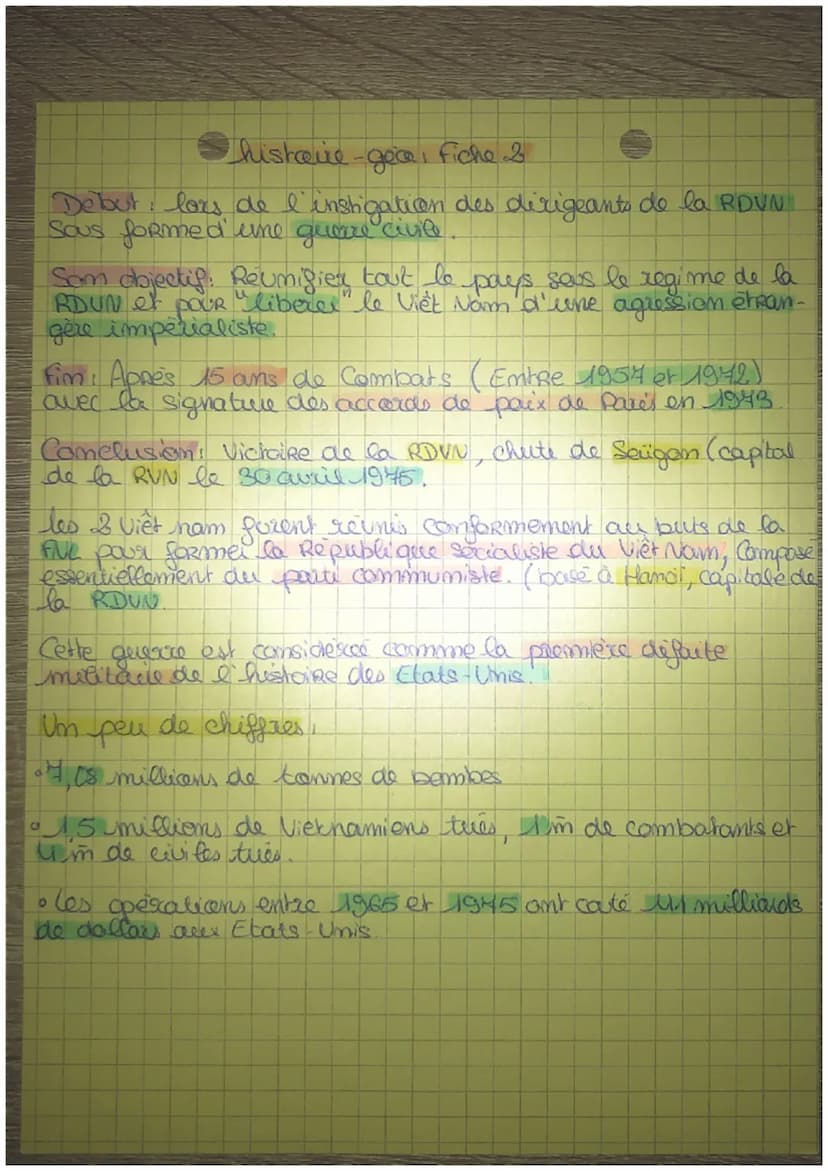 histoire-géo: fiche 2
Début: lors de l'instigation des dirigeants de la RDVN
sous forme d'une guerre civile.
Som objectif: Réumifier tout le pays sous le regime de la
RDVN et pour "liberer" le Viêt Nam d'une agression étran-
gère impérialiste.
Fim: Après 15 ans de Combats (Entre 1957 et 1972)
avec la signature des accords de paix de Paris en 1973
Comclusion: Victoire de la RDVN, chute de Saïgon (capital
de la RVN le 30 avril 1975.
les 2 Viêt nam furent réunis conformement au buts de la
FNL pour former la République socialiste du Viêt Nam, Composé
essentiellement du parti communiste. (basé à Hanoï, capitale de
la RDVN.
Cette guerre est considérée comme la première défaite
militaire de l'histoire des Etats-Unis.
Un peu de chiffres:
• 7,08 millions de tonnes de bombes
• 1,5 millions de Vietnamiens tués, 1m de combatants et
4m de civiles tués.
• Les opérations entre 1965 et 1975 ont couté 111 milliards
de dollars aux Etats-Unis